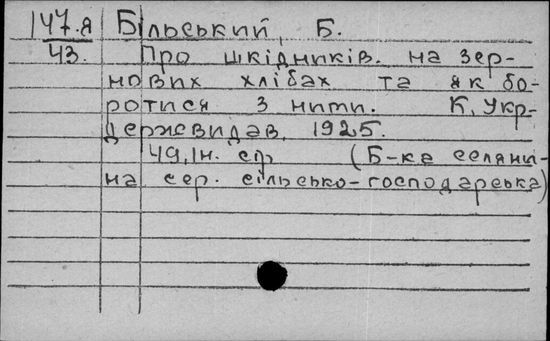 147.я Більський, Б.
43. Про шкідників. на зер-
нових хлібах та як бо-
ротися з ними. К, Укр-
державидав, 1925.
49, Ін. ст (Б-ка селяни-
на сер. сільсько-господарська)